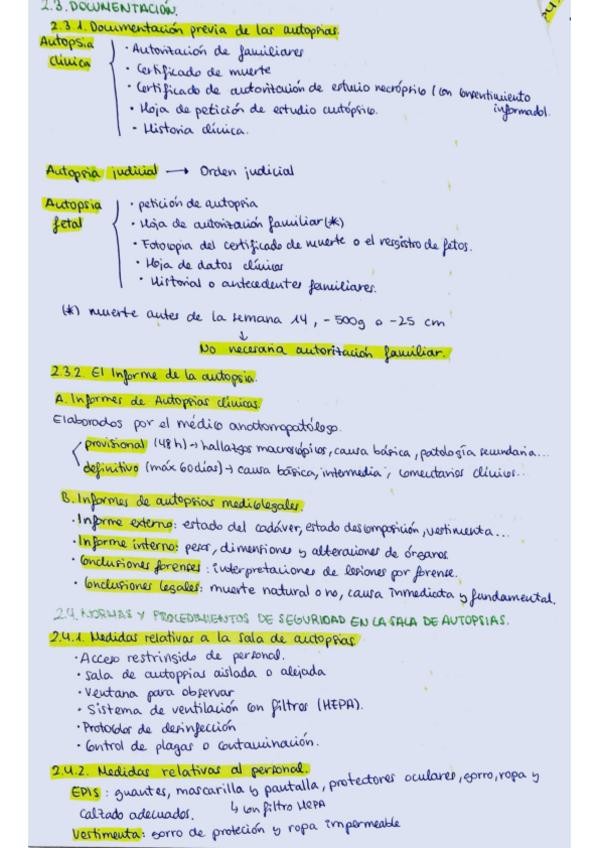 2.3. DOCUMENTACIÓN.
2.3.1. Documentación previa de las autopsias.
Autopsia clínica
· Autorización de familiares
· Certificado de muerte
· Certificado de autorización de estudio necrópsico (con consentimiento informado).
· Hoja de petición de estudio autópsico.
· Historia clínica.
Autopsia judicial → Orden judicial
Autopsia fetal
· petición de autopsia
· Hoja de autorización familiar (*)
· Fotocopia del certificado de muerte o el resgistro de fetos.
· Hoja de datos clínicos
· Historial o antecedentes familiares.
(*) muerte antes de la semana 14, - 500g o -25 cm
↓
No necesaria autorización familiar.
2.3.2. El Informe de la autopsia.
A. Informes de Autopsias clínicas.
Elaborados por el médico anatomopatólogo.
provisional (48h) → hallazgos macroscópicos, causa básica, patología secundaria...
definitivo (máx 60 días) → causa básica, intermedia, comentarios clínicos...
B. Informes de autopsias medicolegales.
· Informe externo: estado del cadáver, estado descomposición, vestimenta...
· Informe interno: peso, dimensiones y alteraciones de órganos.
· Conclusiones forenses: interpretaciones de lesiones por forense.
· Conclusiones legales: muerte natural o no, causa inmediata y fundamental.
2.4. NORMAS Y PROCEDIMIENTOS DE SEGURIDAD EN LA SALA DE AUTOPSIAS.
2.4.1. Medidas relativas a la sala de autopsias
· Acceso restringido de personal.
· Sala de autopsias aislada o alejada
· Ventana para observar
· Sistema de ventilación con filtros (HEPA).
· Protocolos de desinfección
· Control de plagas o contaminación.
2.4.2. Medidas relativas al personal.
EPIS: guantes, mascarilla y pantalla, protectores oculares, gorro, ropa y
calzado adecuados. ↳ con filtro HEPA
Vestimenta: gorro de protección y ropa impermeable